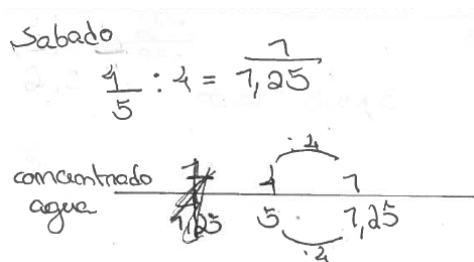 Sabado
4/5 : 4 = 1/1,25
:4
concentrado 4 1
agua 1,25 5 1,25
:4